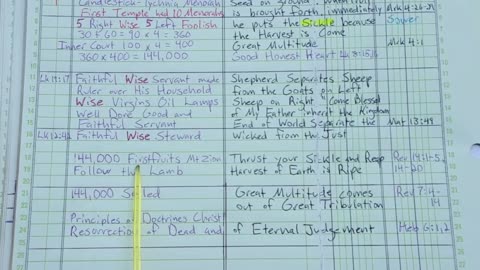 Candlestick-Lychnia Menorah
First Temple had 10 Menorahs
5 Right Wise 5 Left Foolish
30 + 60 = 90 x 4 = 360
Inner Court 100 x 4 = 400
360 x 400 = 144,000
Seed on ground, when fruit
is brought forth, immediately Mrk 4:26-29
he puts the Sickle because Sower
the Harvest is Come
Great Multitude Mrk 4:1
Good Honest Heart Lk 8:15
Lk 19:17 Faithful Wise Servant made
Ruler over His Household
Wise Virgins Oil Lamps
Well Done Good and
Faithful Servant
Lk 12:42 Faithful Wise Steward
Shepherd Separates Sheep
from the Goats on Left
Sheep on Right "Come Blessed
of My Father inherit the Kingdom
End of World Separate the Mat 13:49
Wicked from the Just
144,000 Firstfruits Mt Zion
Follow the Lamb
Thrust your Sickle and Reap Rev 14:1-5,
Harvest of Earth is Ripe 14-20
144,000 Sealed
Great Multitude comes Rev 7:4-
out of Great Tribulation 14
Principles of Doctrines Christ
Resurrection of Dead and of Eternal Judgement Heb 6:1,2
14
15
16
17
18
19
20
21
22
23
24